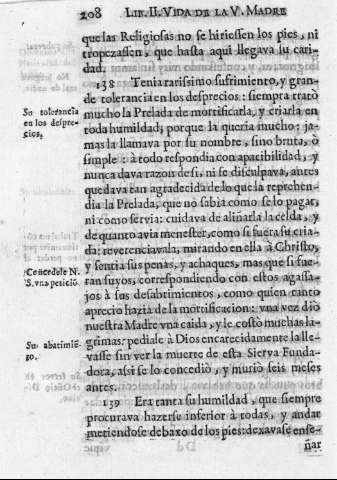 208 LIB. II. VIDA DE LA V. MADRE
que las Religiosas no se hiriessen los pies, ni
tropezassen, que hasta aqui llegava su cari-
dad.
138 Tenia rarissimo sufrimiento, y gran-
de tolerancia en los desprecios: siempre tratò
mucho la Prelada de mortificarla, y criarla en
toda humildad, porque la queria mucho: ja-
mas la llamava por su nombre, sino bruta, ò
simple: à todo respondia con apacibilidad, y
nunca dava razon de si, ni se disculpava, antes
quedava tan agradecida de lo que la reprehen-
dia la Prelada, que no sabia como se lo pagar,
ni como servia: cuidava de aliñarla la celda, y
de quanto avia menester, como si fuera su cria-
da: reverenciavala, mirando en ella à Christo,
y sentia sus penas, y achaques, mas que si fue-
ran suyos, correspondiendo con estos agassa-
jos à sus desabrimientos, como quien tanto
aprecio hazia de la mortificacion: vna vez diò
nuestra Madre vna caida, y le costò muchas la-
grimas: pediale à Dios encarecidamente la lle-
vasse sin ver la muerte de esta Sierva Funda-
dora, assi se lo concediò, y muriò seis meses
antes.
139 Era tanta su humildad, que siempre
procurava hazerse inferior à todas, y andar
metiendose debaxo de los pies: dexavase ense-
ñar
Su tolerancia
en los despre-
cios,
Concedele N.
S. vna peticiō.
Su abatimiē-
go.